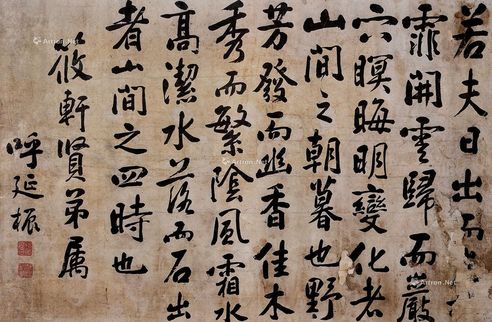 若夫日出而
霏開雲歸而巖
穴暝晦明變化者
山間之朝暮也野
芳發而幽香佳木
秀而繁陰風霜水
高潔水落而石出
者山間之四時也
筱軒賢弟属
呼延振
Artron.Net